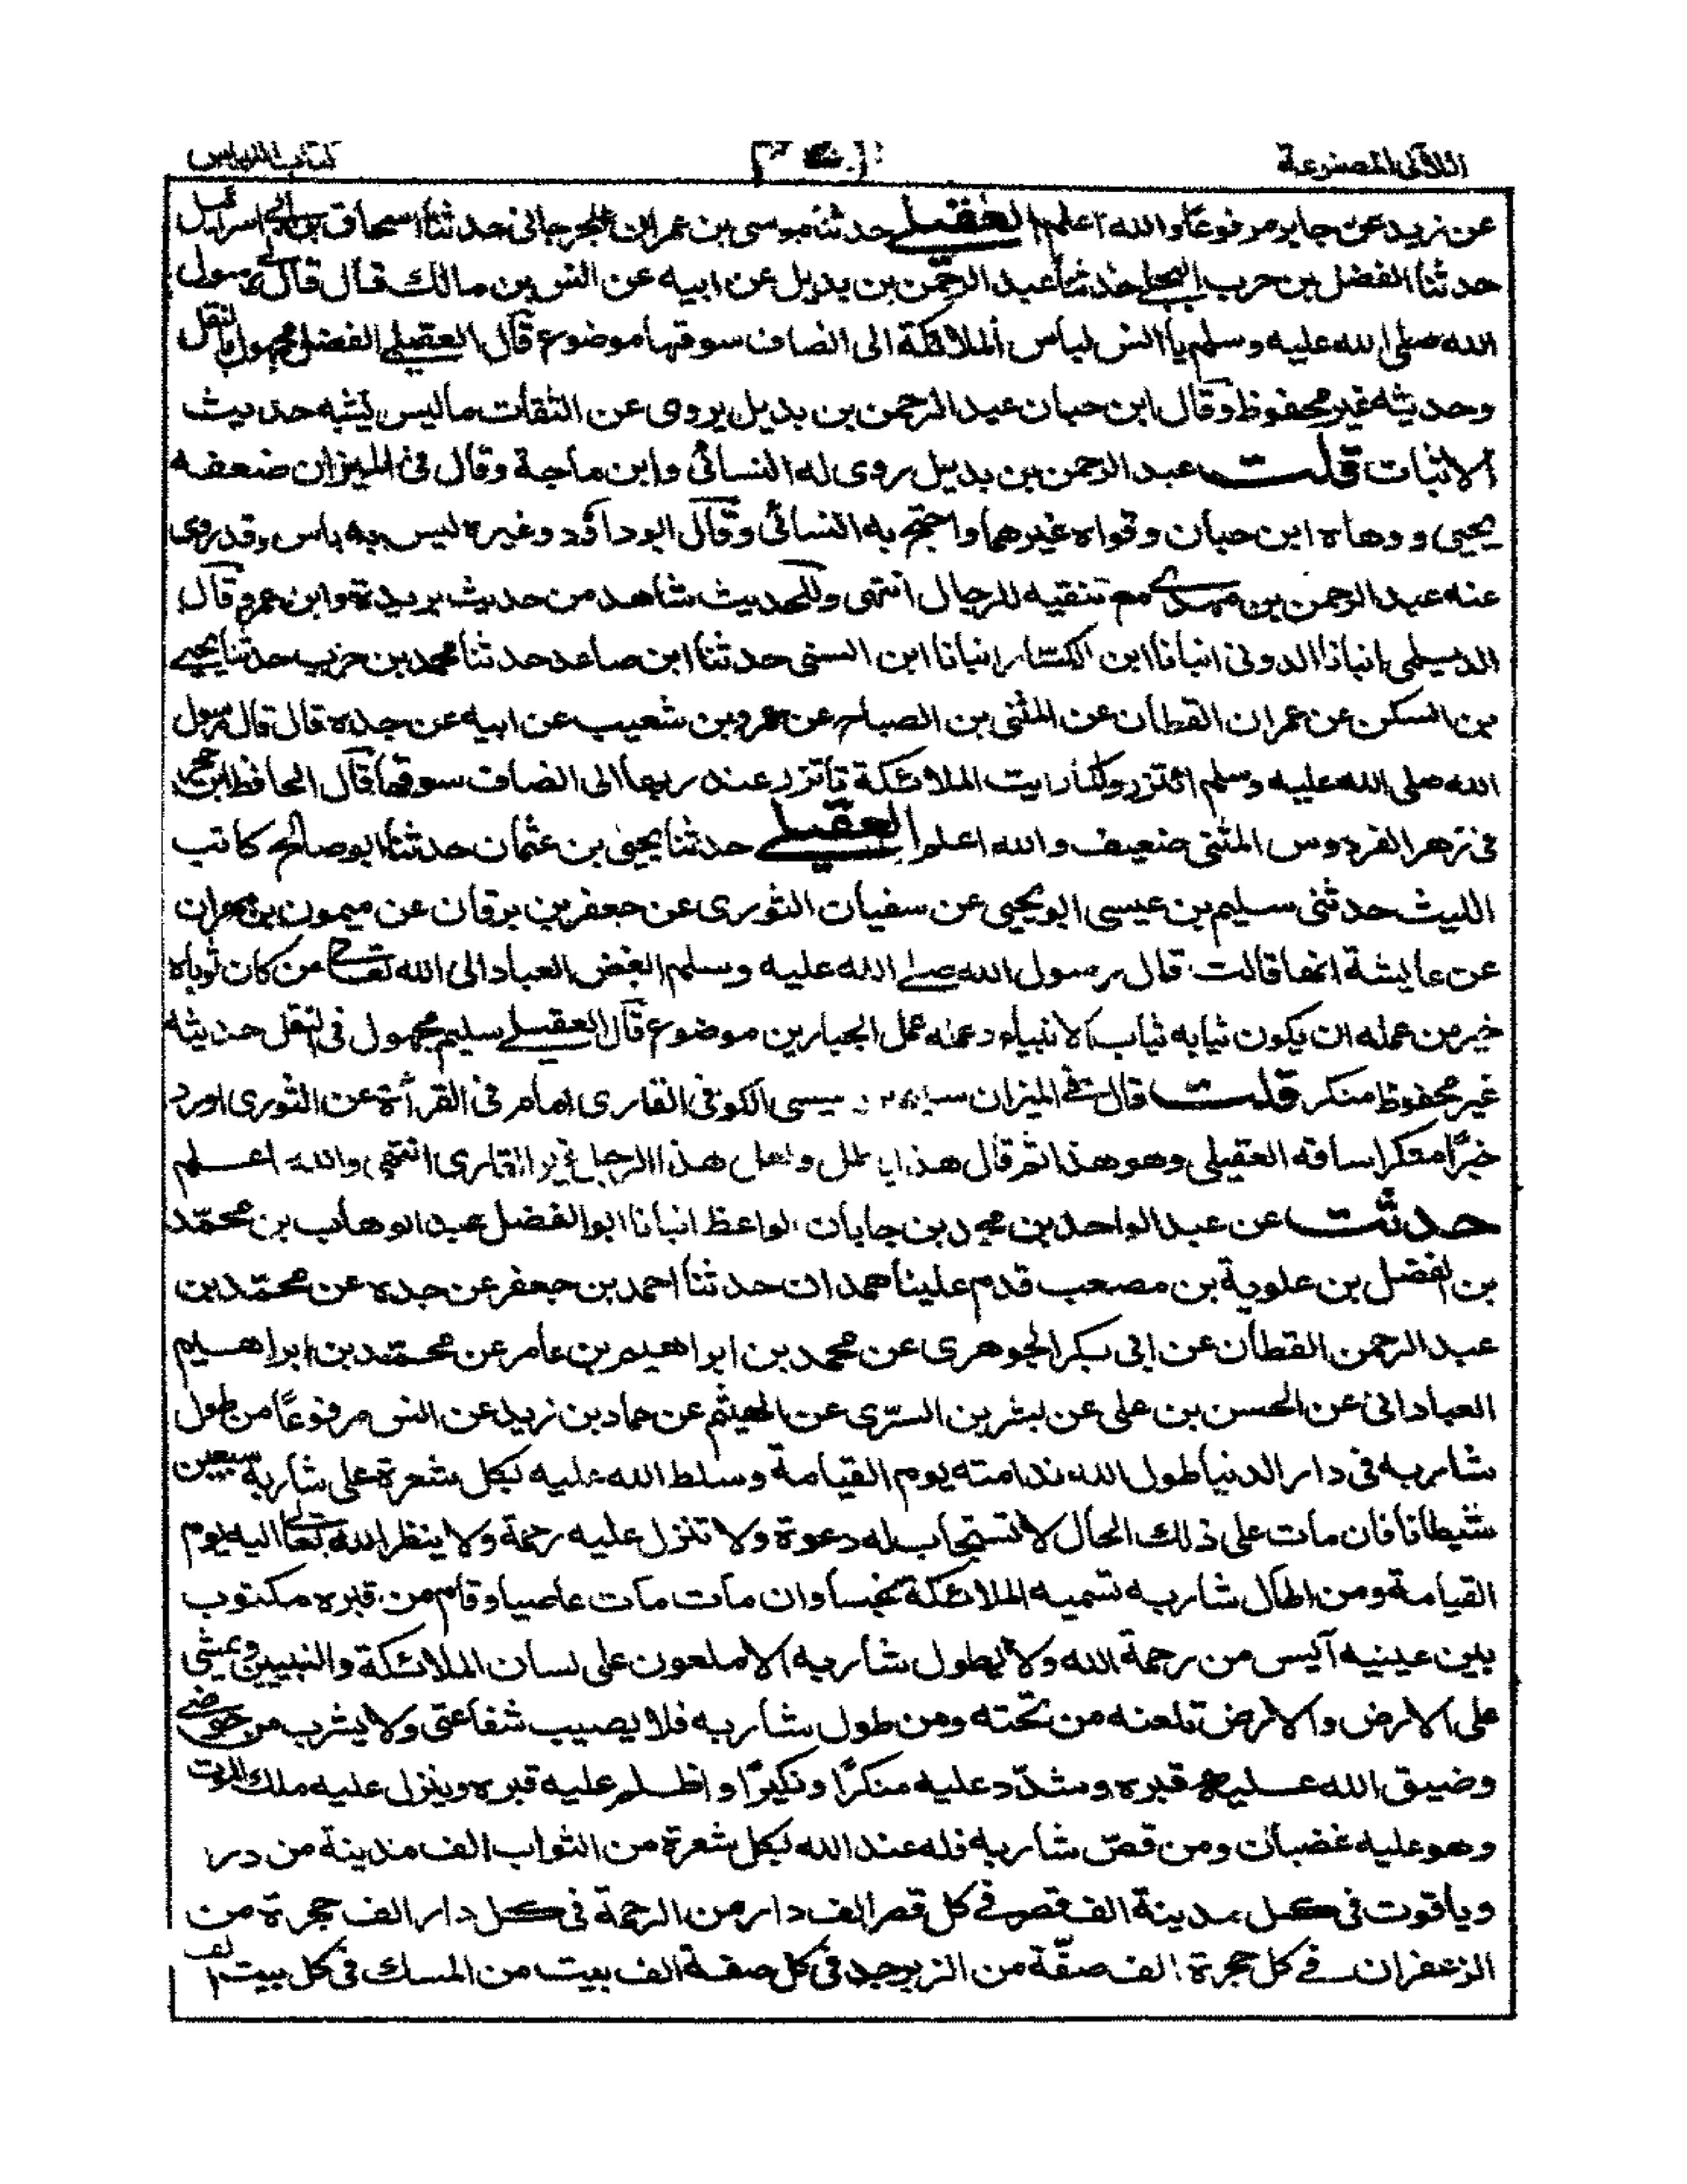 اللآلی المصنوعة
كتاب اللباس
عن زيد عن جابر مرفوعًا والله اعلم العقيلے حدثنا موسى بن عمران الجرجانى حدثنا اسحاق بن ابى اسرائيل
حدثنا الفضل بن حرب البجلے حدثنا عبد الرحمن بن بديل عن ابيه عن انس بن مالك قال قال لى رسول
الله صلى الله عليه وسلم يا انس لباس الملائكة الى انصاف سوقها موضوع قال العقيلى الفضل مجهول بالنقل
وحديثه غير محفوظ وقال ابن حبان عبد الرحمن بن بديل يروى عن الثقات ماليس يشبه حديث
الاثبات قلت عبد الرحمن بن بديل روى له النسائى وابن ماجة وقال فى الميزان ضعفه
يحيى ووهاه ابن حبان وقواه غيرهما واحتج به النسائى وقال ابوداؤد وغيره ليس به باس وقد روى
عنه عبد الرحمن بن مهدے مع تنقيه للرجال انتهى وللحديث شاهد من حديث بريدة وابن عمرو قال
الديلمى انبانا الدونى انبانا ابن الكسار انبانا ابن السنى حدثنا ابن صاعد حدثنا محمد بن حرب حدثنا يحيے
بن السكن عن عمران القطان عن المثنى بن الصباح عن عمرو بن شعيب عن ابيه عن جده قال قال رسول
الله صلى الله عليه وسلم ائتزروا كما رايت الملائكة تاتزر عند ربها الى انصاف سوقها قال الحافظ ابن حجر
فى زهر الفردوس المثنى ضعيف والله اعلم العقيلے حدثنا يحيى بن عثمان حدثنا ابو صالح كاتب
الليث حدثنى سليم بن عيسى ابو يحيى عن سفيان الثورى عن جعفر بن برقان عن ميمون بن مهران
عن عايشة انها قالت قال رسول الله صلے الله عليه وسلم ابغض العباد الى الله تعالے من كان ثوباه
خير من عمله ان يكون ثيابه ثياب الانبياء وعمله عمل الجبارين موضوع قال العقيلے سليم مجهول فى النقل حديثه
غير محفوظ منكر قلت قال فے الميزان عيسى الكوفى القارى امام فى القرأة عن الثورى اورد
خبرًا منكرا ساقه العقيلى وهو هذا ثم قال هذا باطل ولعل هذا الرجل غير القارى انتهى والله اعلم
حدثت عن عبد الواحد بن محمد بن جابان الواعظ انبانا ابو الفضل عبد الوهاب بن محمّد
بن الفضل بن علوية بن مصعب قدم علينا همدان حدثنا احمد بن جعفر عن جده عن محمّد بن
عبد الرحمن القطان عن ابى بكر الجوهرى عن محمد بن ابراهيم بن عامر عن محمّد بن ابراهيم
العبادانى عن الحسن بن على عن بشر بن السرّى عن الهيثم عن حماد بن زيد عن انس مرفوعًا من طول
شاربه فى دار الدنيا طول الله ندامته يوم القيامة وسلط الله عليه بكل شعرة على شاربه سبعين
شيطانا فان مات على ذلك الحال لا تستجاب له دعوة ولا تنزل عليه رحمة ولا ينظر الله تعالے اليه يوم
القيامة ومن اطال شاربه تسميه الملائكة نجسا وان مات مات عاصيا وقام من قبره مكتوب
بين عينيه آيس من رحمة الله ولا يطول شاربه الا ملعون على لسان الملائكة والنبيين ويمشى
على الارض والارض تلعنه من تحته ومن طول شاربه فلا يصيب شفاعتى ولا يشرب من حوضے
وضيق الله عليه قبره وشدّد عليه منكرًا ونكيرًا واظلم عليه قبره وينزل عليه ملك الموت
وهو عليه غضبان ومن قصّ شاربه فله عند الله بكل شعرة من الثواب الف مدينة من در
وياقوت فى كل مدينة الف قصر فے كل قصر الف دار من الرحمة فى كل دار الف حجرة من
الزعفران فے كل حجرة الف صفّة من الزبرجد فى كل صفة الف بيت من المسك فى كل بيت الف